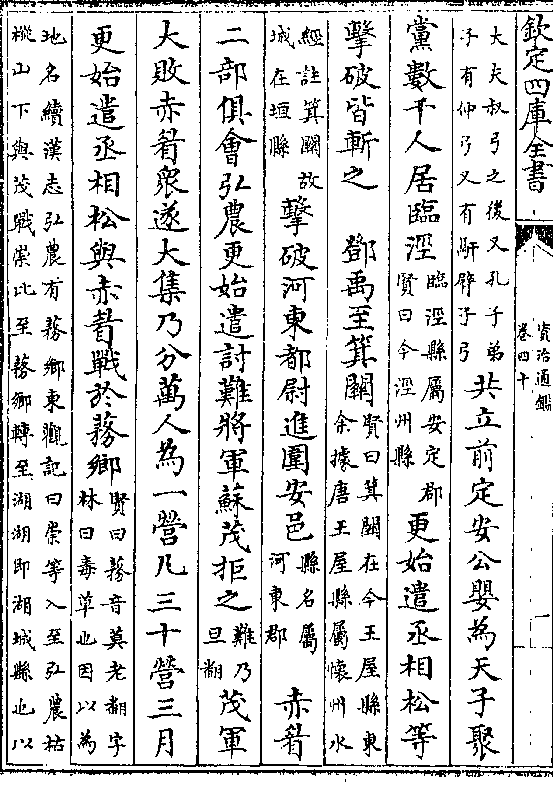 欽定四庫全書
資治通鑑
卷四十
大夫叔弓之後又孔子弟
子有仲弓又有馯臂子弓
共立前定安公嬰為天子聚
黨數千人居臨涇
臨涇縣屬安定郡
賢曰今涇州縣
更始遣丞相松等
擊破皆斬之
鄧禹至箕關
賢曰箕關在今王屋縣東
余據唐王屋縣屬懷州水
經註箕關故
城在垣縣
擊破河東都尉進圍安邑
縣名屬
河東郡
赤眉
二部俱會弘農更始遣討難將軍蘇茂拒之
難乃
旦翻
茂軍
大敗赤眉衆遂大集乃分萬人為一營凡三十營三月
更始遣丞相松與赤眉戰於蓩鄉
賢曰蓩音莫老翻字
林曰毒草也因以為
地名續漢志弘農有蓩鄉東觀記曰崇等入至弘農枯
樅山下與茂戰崇北至蓩鄉轉至湖湖即湖城縣也以